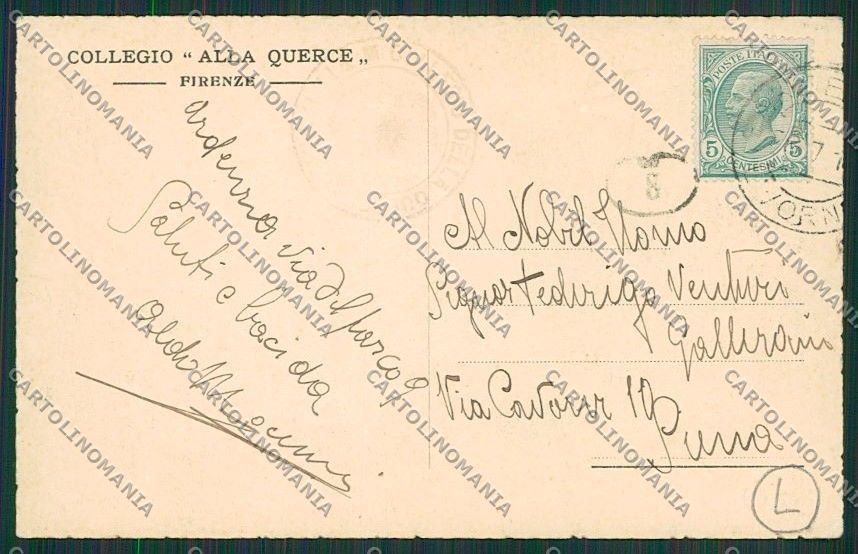 COLLEGIO “ ALLA QUERCE „
FIRENZE
Ardenza via del parco 9
Saluti e baci da
Aldo
DELLA
POSTE ITALIANE
5 CENTESIMI 5
8
Al Nobil Uomo
Signor Federigo Venturi
Gallerani
Via Cavour 18
Siena
L
CARTOLINOMANIA